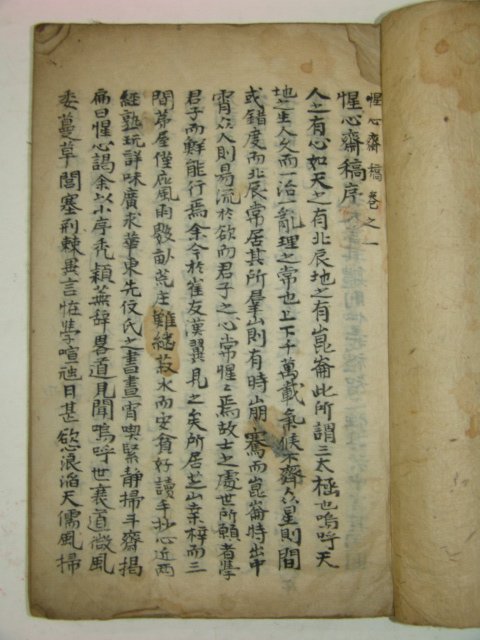 惺心齋稿卷之一
惺心齋稿序
人之有心如天之有北辰地之有崑崙此所謂三太極也嗚呼天
地之生人久而一治一亂理之常也上下千萬載氣候不齊衆星則間
或錯度而北辰常居其所羣山則有時崩騫而崑崙特出中
霄衆人則易流於欲而君子之心常惺惺焉故士之處世所願者學
君子而鮮能行焉余今於崔友漢翼見之矣所居芝山桑梓而三
間茅屋僅庇風雨數畝荒庄難繼菽水而安貧好讀手抄心近兩
經熟玩詳味廣求華東先修氏之書晝宵喫緊靜掃斗齋揭
扁曰惺心謁余以小序禿穎蕪辭畧道見聞嗚呼世衰道微風
委蔓草閭塞荊棘異言恠學喧豗日甚慾浪滔天儒風掃